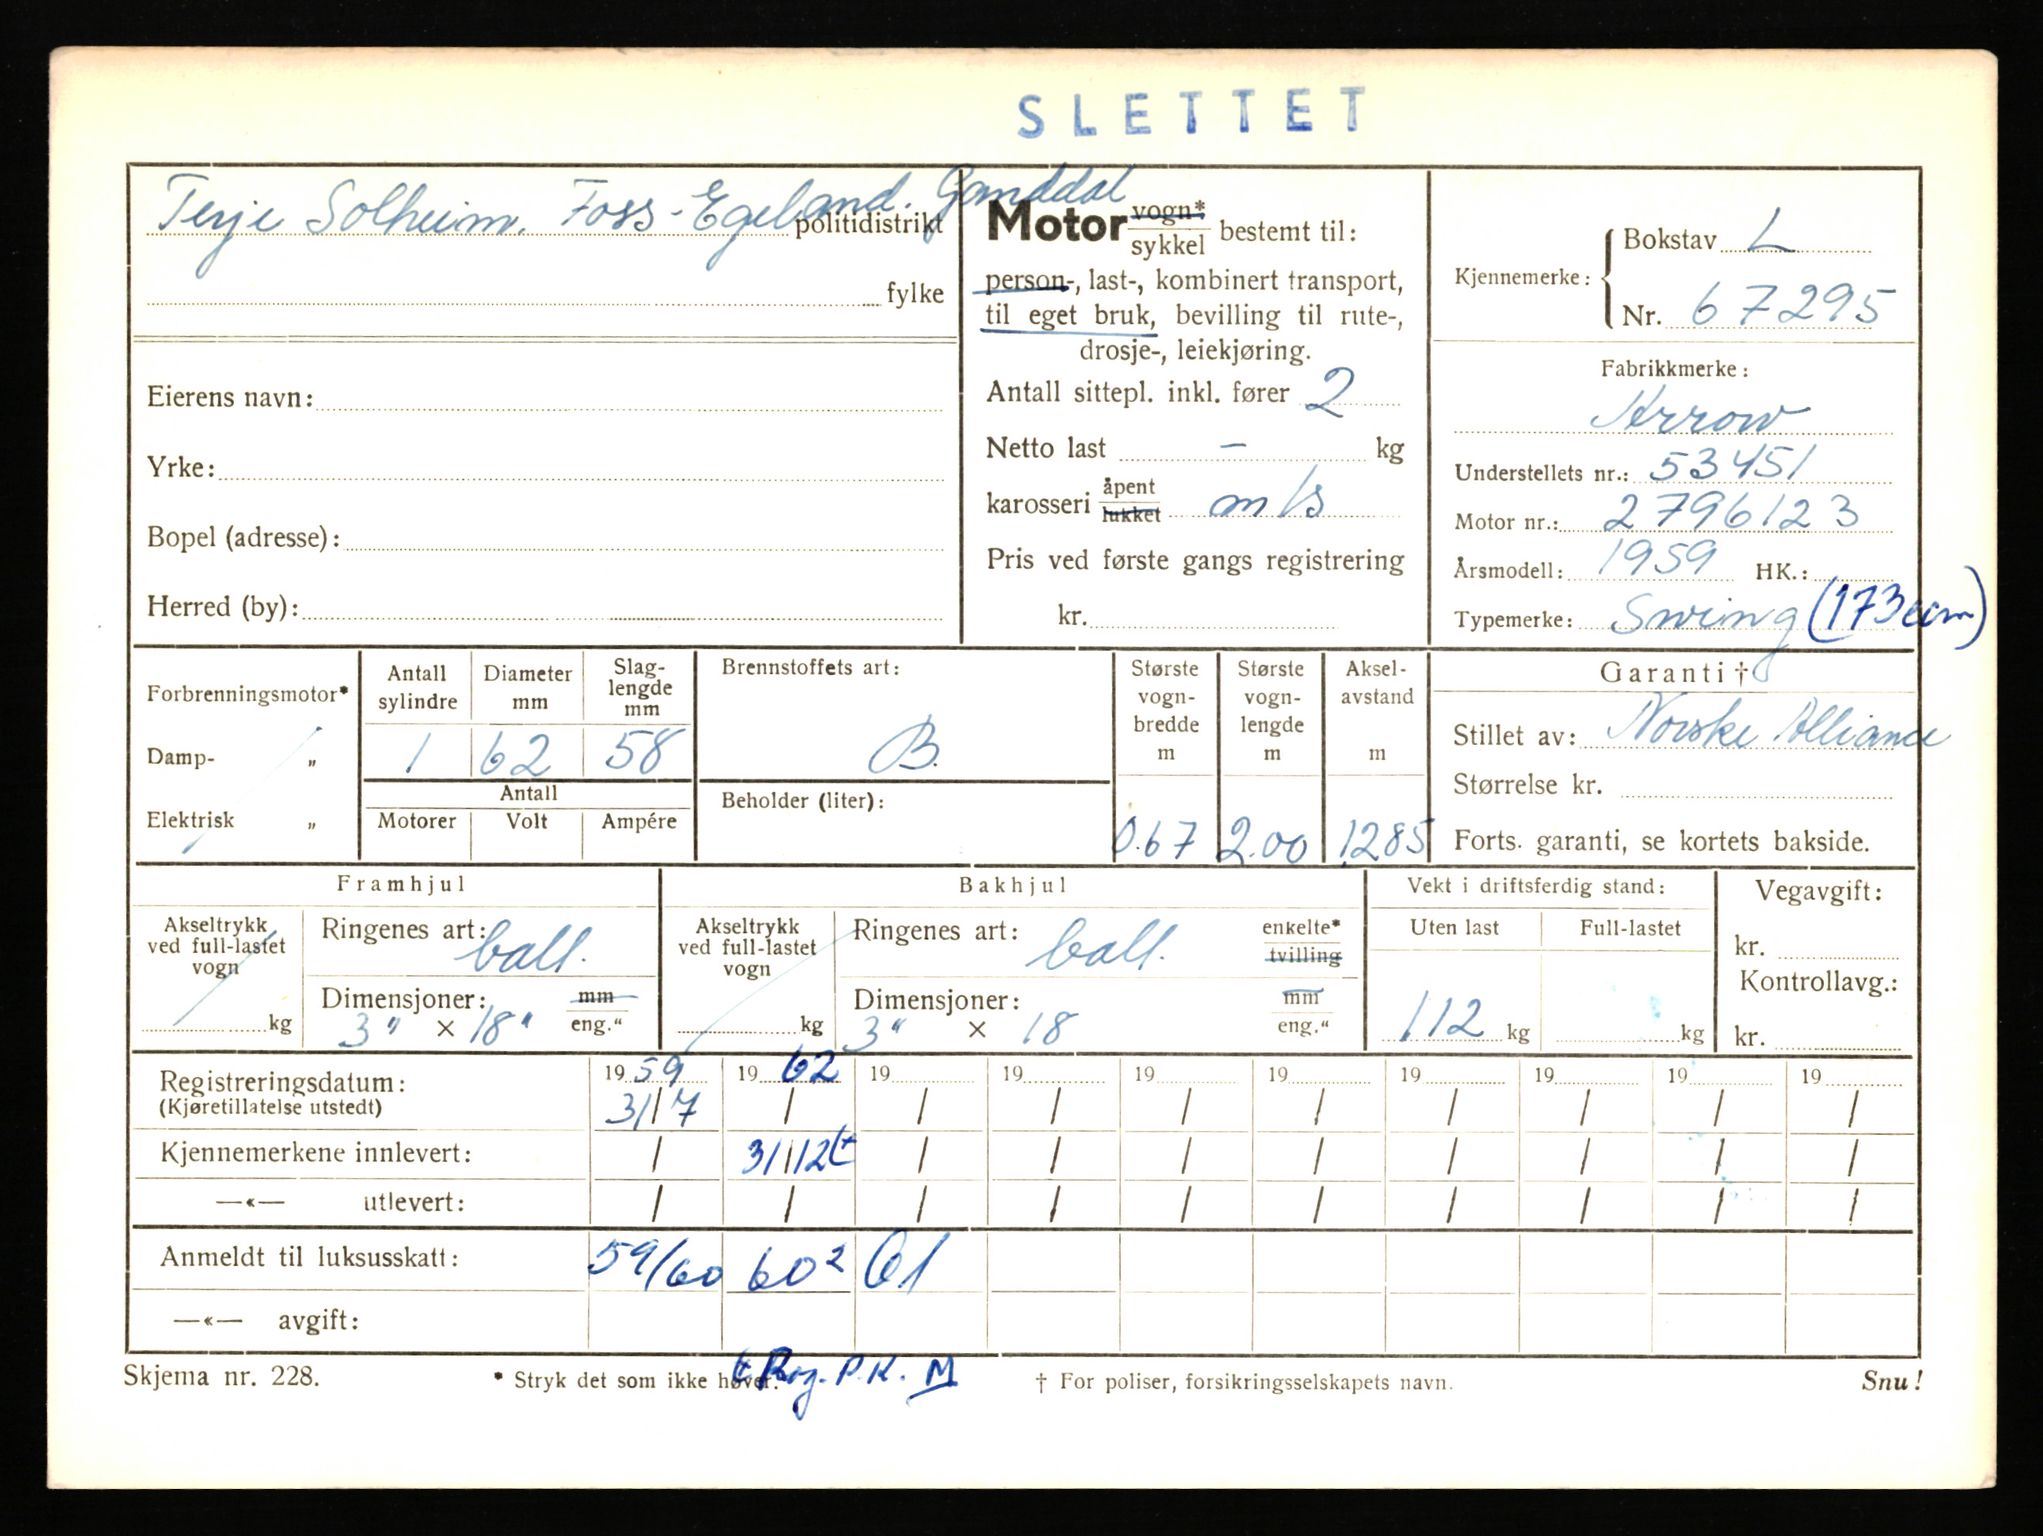 SLETTET
Terje Solheim, Foss-Egeland. Ganddal
politidistrikt
fylke
Eierens navn:
Yrke:
Bopel (adresse):
Herred (by):
Motor vogn* sykkel bestemt til:
person-, last-, kombinert transport,
til eget bruk, bevilling til rute-,
drosje-, leiekjøring.
Antall sittepl. inkl. fører 2
Netto last - kg
karosseri åpent lukket m/s
Pris ved første gangs registrering
kr.
Kjennemerke: Bokstav L
Nr. 67295
Fabrikkmerke:
Arrow
Understellets nr.: 53451
Motor nr.: 2796123
Årsmodell: 1959 HK.:
Typemerke: Swing (173 ccm)
Forbrenningsmotor*
Damp- „
Elektrisk „
Antall sylindre Diameter mm Slag-lengde mm
1 62 58
Antall
Motorer Volt Ampére
Brennstoffets art:
B.
Beholder (liter):
Største vogn-bredde m Største vogn-lengde m Aksel-avstand m
0.67 2.00 1285
Garanti †
Stillet av: Norske Alliance
Størrelse kr.
Forts. garanti, se kortets bakside.
Framhjul
Akseltrykk ved full-lastet vogn kg
Ringenes art: ball.
Dimensjoner: mm eng."
3" × 18"
Bakhjul
Akseltrykk ved full-lastet vogn kg
Ringenes art: ball. enkelte* tvilling
Dimensjoner: mm eng."
3" × 18
Vekt i driftsferdig stand:
Uten last Full-lastet
112 kg kg
Vegavgift:
kr.
Kontrollavg.:
kr.
Registreringsdatum: 19 59 19 62 19 19 19 19 19 19 19 19
(Kjøretillatelse utstedt) 31/7 / / / / / / / / /
Kjennemerkene innlevert: / 31/12 t / / / / / / / /
—«— utlevert: / / / / / / / / / /
Anmeldt til luksusskatt: 59/60 60² 61
—«— avgift:
Skjema nr. 228. * Stryk det som ikke høver. t Rog. P.K. M † For poliser, forsikringsselskapets navn. Snu!